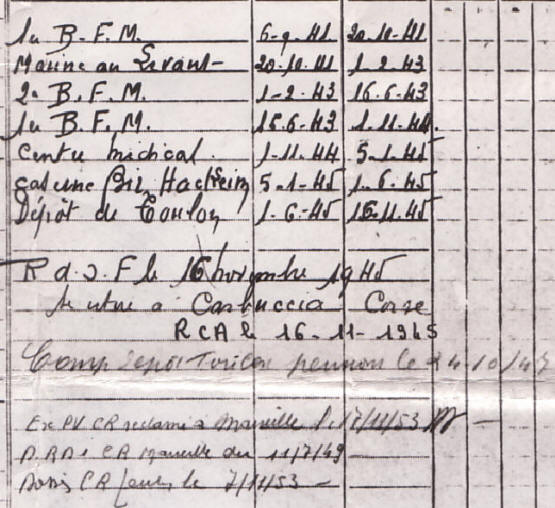 1er B.F.M. 6-9-41 20-10-41
Marine au Levant 20-10-41 1-2-43
2e B.F.M. 1-2-43 16-6-43
1er B.F.M. 16-6-43 1-11-44.
Centre médical. 1-11-44 5-1-45
Caserne Bir Hacheim 5-1-45 1-6-45
Dépôt de Toulon 1-6-45 16-11-45
R d. S. F le 16 novembre 1945
Se retire à Casbuccia Corse
RCA le 16-11-1945
Comp Dépôt Toulon le 24/10/47
Ex PV CR reclamé à Marseille le 17/11/53
CR Marseille du 11/7/49
CR le 7/11/53